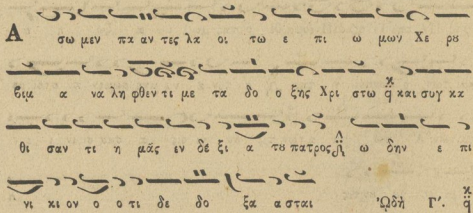 Α σω μεν πα αν τες λα οι τω ε πι ω μων Χε ρου
βιμ α να λη φθεν τι με τα δο ο ξης Χρι στω και συγ κα
θι σαν τι η μᾶς εν δε ξι α του πατρος ω δην ε πι
νι κι ον ο ο τι δε δο ξα α σται Ὠδὴ Γ'.